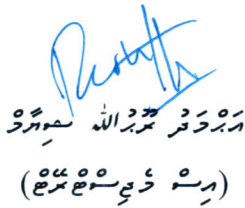 އަޙްމަދު ރޫޙުﷲ ޝިޔާމް
(އިސް މެޖިސްޓްރޭޓް)